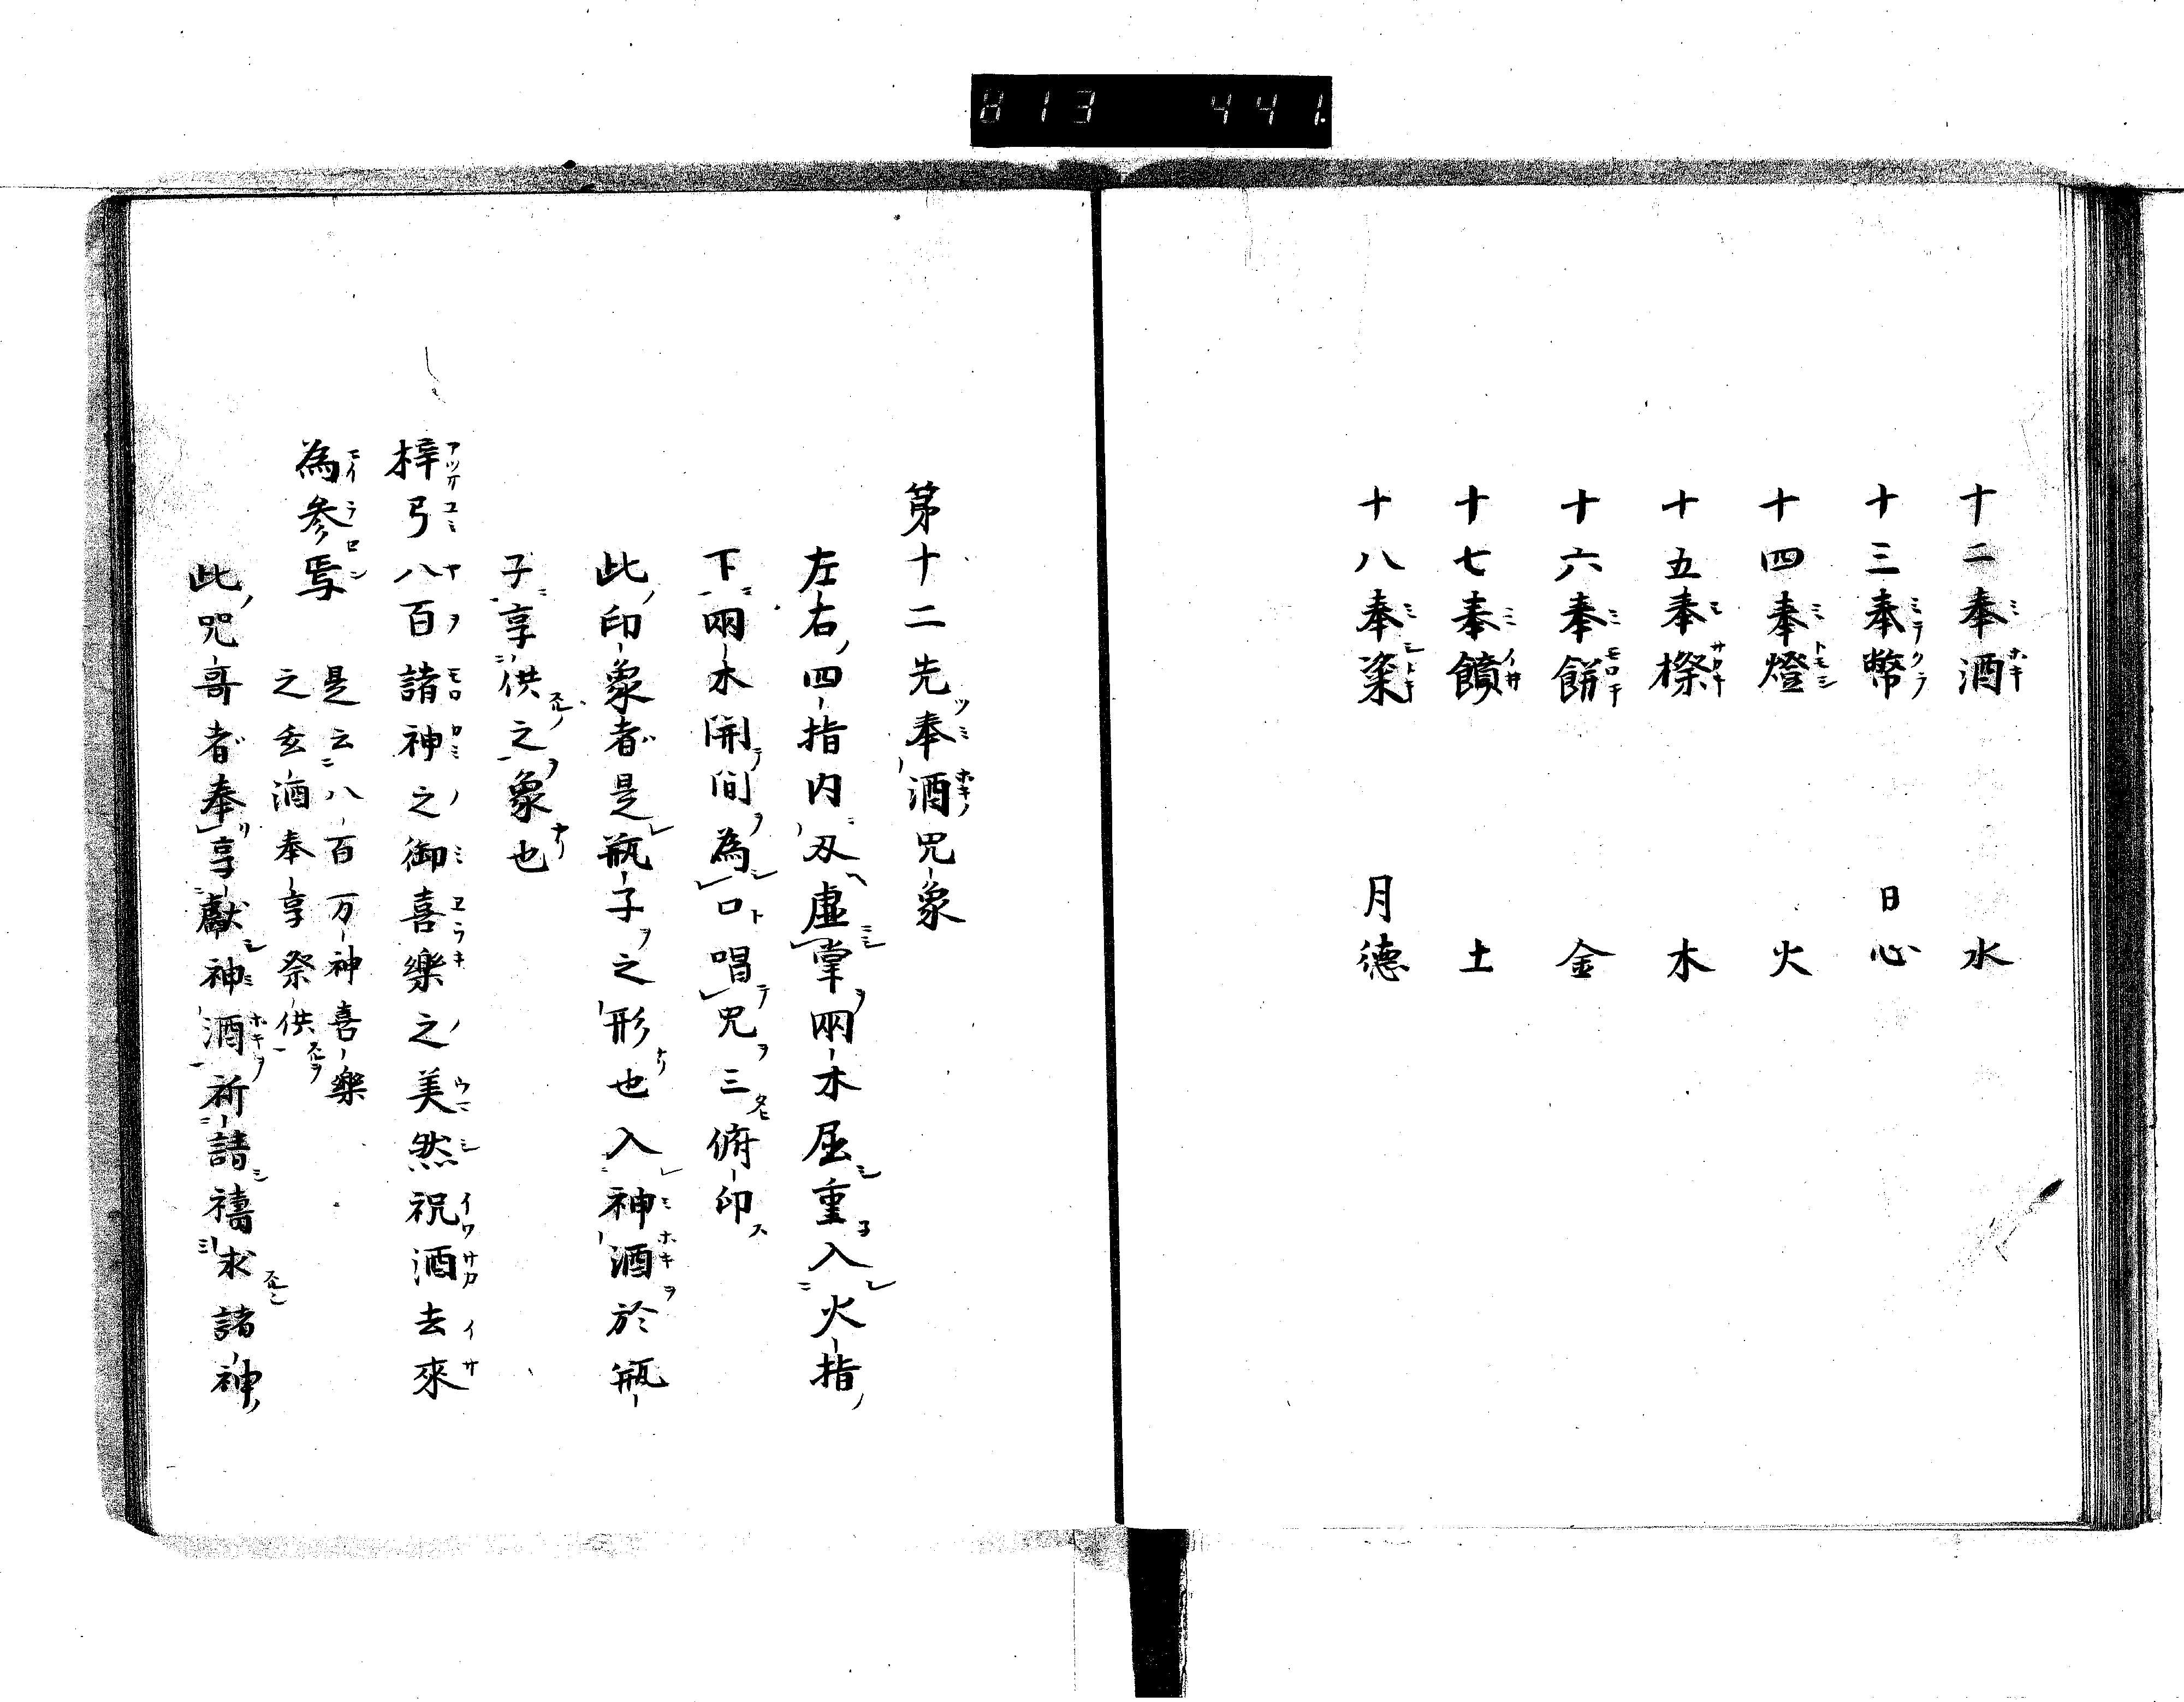 813 441
十二奉酒 水
十三奉幣 日心
十四奉燈 火
十五奉榊 木
十六奉餅 金
十七奉饙 土
十八奉粢 月德
第十二先奉酒咒象
左右四指内刄虛掌兩木屈重入火指
下兩木開間為口唱咒三俯印
此印象者是瓶子之形也入神酒於瓶
子享供之象也
梓弓八百諸神之御喜樂之美然祝酒去來
為參焉
是云八百万神喜樂
之玄酒奉享祭供
此咒哥者奉享獻神酒祈請禱求諸神